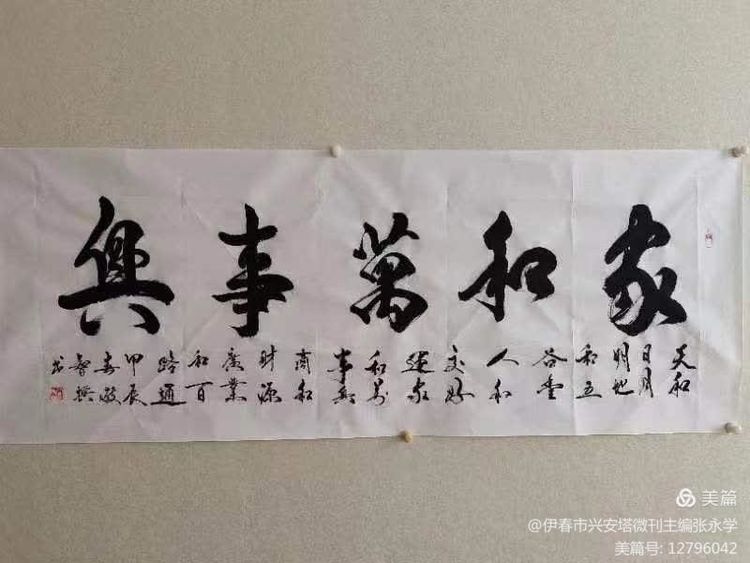 家和萬事興
天和
日月
明地
和五
谷豐
人和
交好
運家
和万
事興
商和
財源
廣業
和百
路通
甲辰
春
书
美篇
@伊春市兴安塔微刊主编张永学
美篇号: 12796042